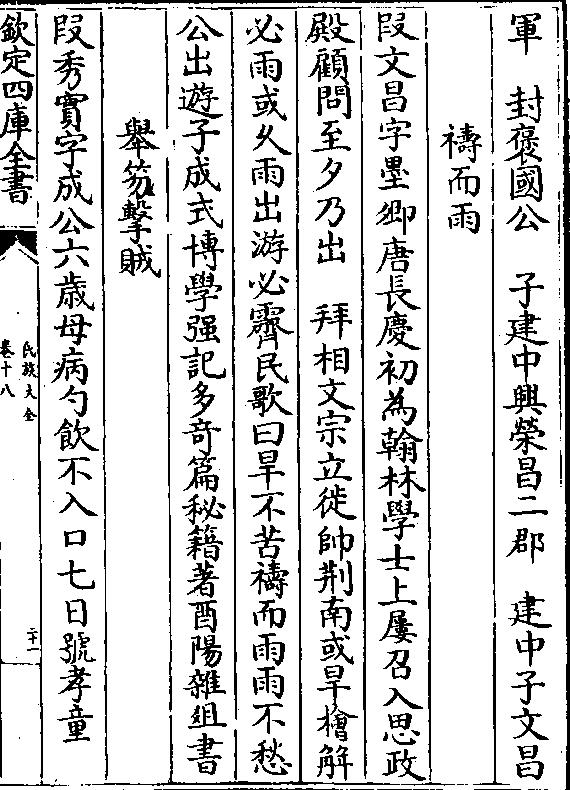 軍　封褒國公　子建中興榮昌二郡　建中子文昌
禱而雨
段文昌字墨卿唐長慶初為翰林學士上屢召入思政
殿顧問至夕乃出　拜相文宗立徙帥荆南或旱禬解
必雨或久雨出游必霽民歌曰旱不苦禱而雨雨不愁
公出遊子成式博學强記多奇篇秘籍著酉陽雜俎書
舉笏擊賊
段秀實字成公六歲母病勺飲不入口七日號孝童
欽定四庫全書
氏族大全
卷十八
二十一